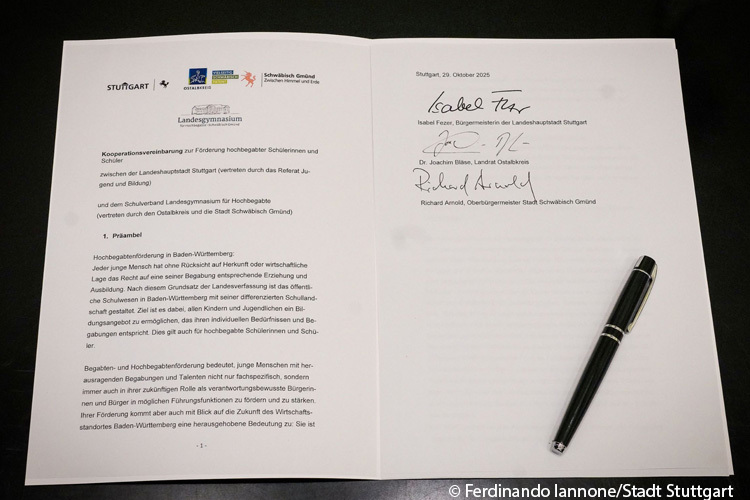 STUTTGART
OSTALBKREIS
Schwäbisch Gmünd
Zwischen Himmel und Erde
Landesgymnasium
Kooperationsvereinbarung zur Förderung hochbegabter Schülerinnen und
Schüler
zwischen der Landeshauptstadt Stuttgart (vertreten durch das Referat Ju-
gend und Bildung)
und dem Schulverband Landesgymnasium für Hochbegabte
(vertreten durch den Ostalbkreis und die Stadt Schwäbisch Gmünd)
1. Präambel
Hochbegabtenförderung in Baden-Württemberg:
Jeder junge Mensch hat ohne Rücksicht auf Herkunft oder wirtschaftliche
Lage das Recht auf eine seiner Begabung entsprechende Erziehung und
Ausbildung. Nach diesem Grundsatz der Landesverfassung ist das öffentli-
che Schulwesen in Baden-Württemberg mit seiner differenzierten Schulland-
schaft gestaltet. Ziel ist es dabei, allen Kindern und Jugendlichen ein Bil-
dungsangebot zu ermöglichen, das ihren individuellen Bedürfnissen und Be-
gabungen entspricht. Dies gilt auch für hochbegabte Schülerinnen und Schü-
ler.
Begabten- und Hochbegabtenförderung bedeutet, junge Menschen mit her-
ausragenden Begabungen und Talenten nicht nur fachspezifisch, sondern
immer auch in ihrer zukünftigen Rolle als verantwortungsbewusste Bürgerin-
nen und Bürger in möglichen Führungsfunktionen zu fördern und zu stärken.
Ihrer Förderung kommt aber auch mit Blick auf die Zukunft des Wirtschafts-
standortes Baden-Württemberg eine herausgehobene Bedeutung zu: Sie ist
- 1 -
Stuttgart, 29. Oktober 2025
Isabel Fezer
Isabel Fezer, Bürgermeisterin der Landeshauptstadt Stuttgart
Dr. Joachim Bläse, Landrat Ostalbkreis
Richard Arnold
Richard Arnold, Oberbürgermeister Stadt Schwäbisch Gmünd
© Ferdinando Iannone/Stadt Stuttgart